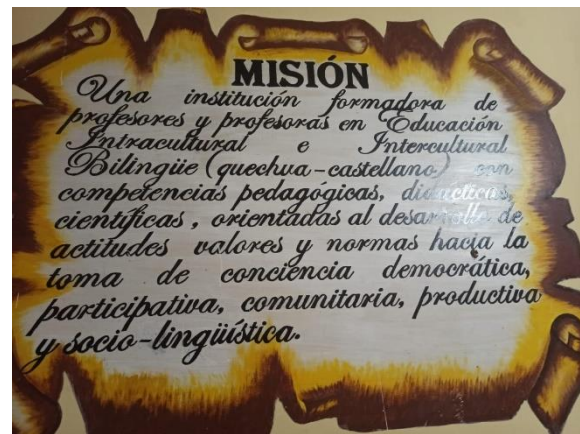 MISIÓN
Una institución formadora de
profesores y profesoras en Educación
Intracultural e Intercultural
Bilingüe (quechua-castellano) con
competencias pedagógicas, didácticas,
científicas, orientadas al desarrollo de
actitudes valores y normas hacia la
toma de conciencia democrática,
participativa, comunitaria, productiva
y socio-lingüística.